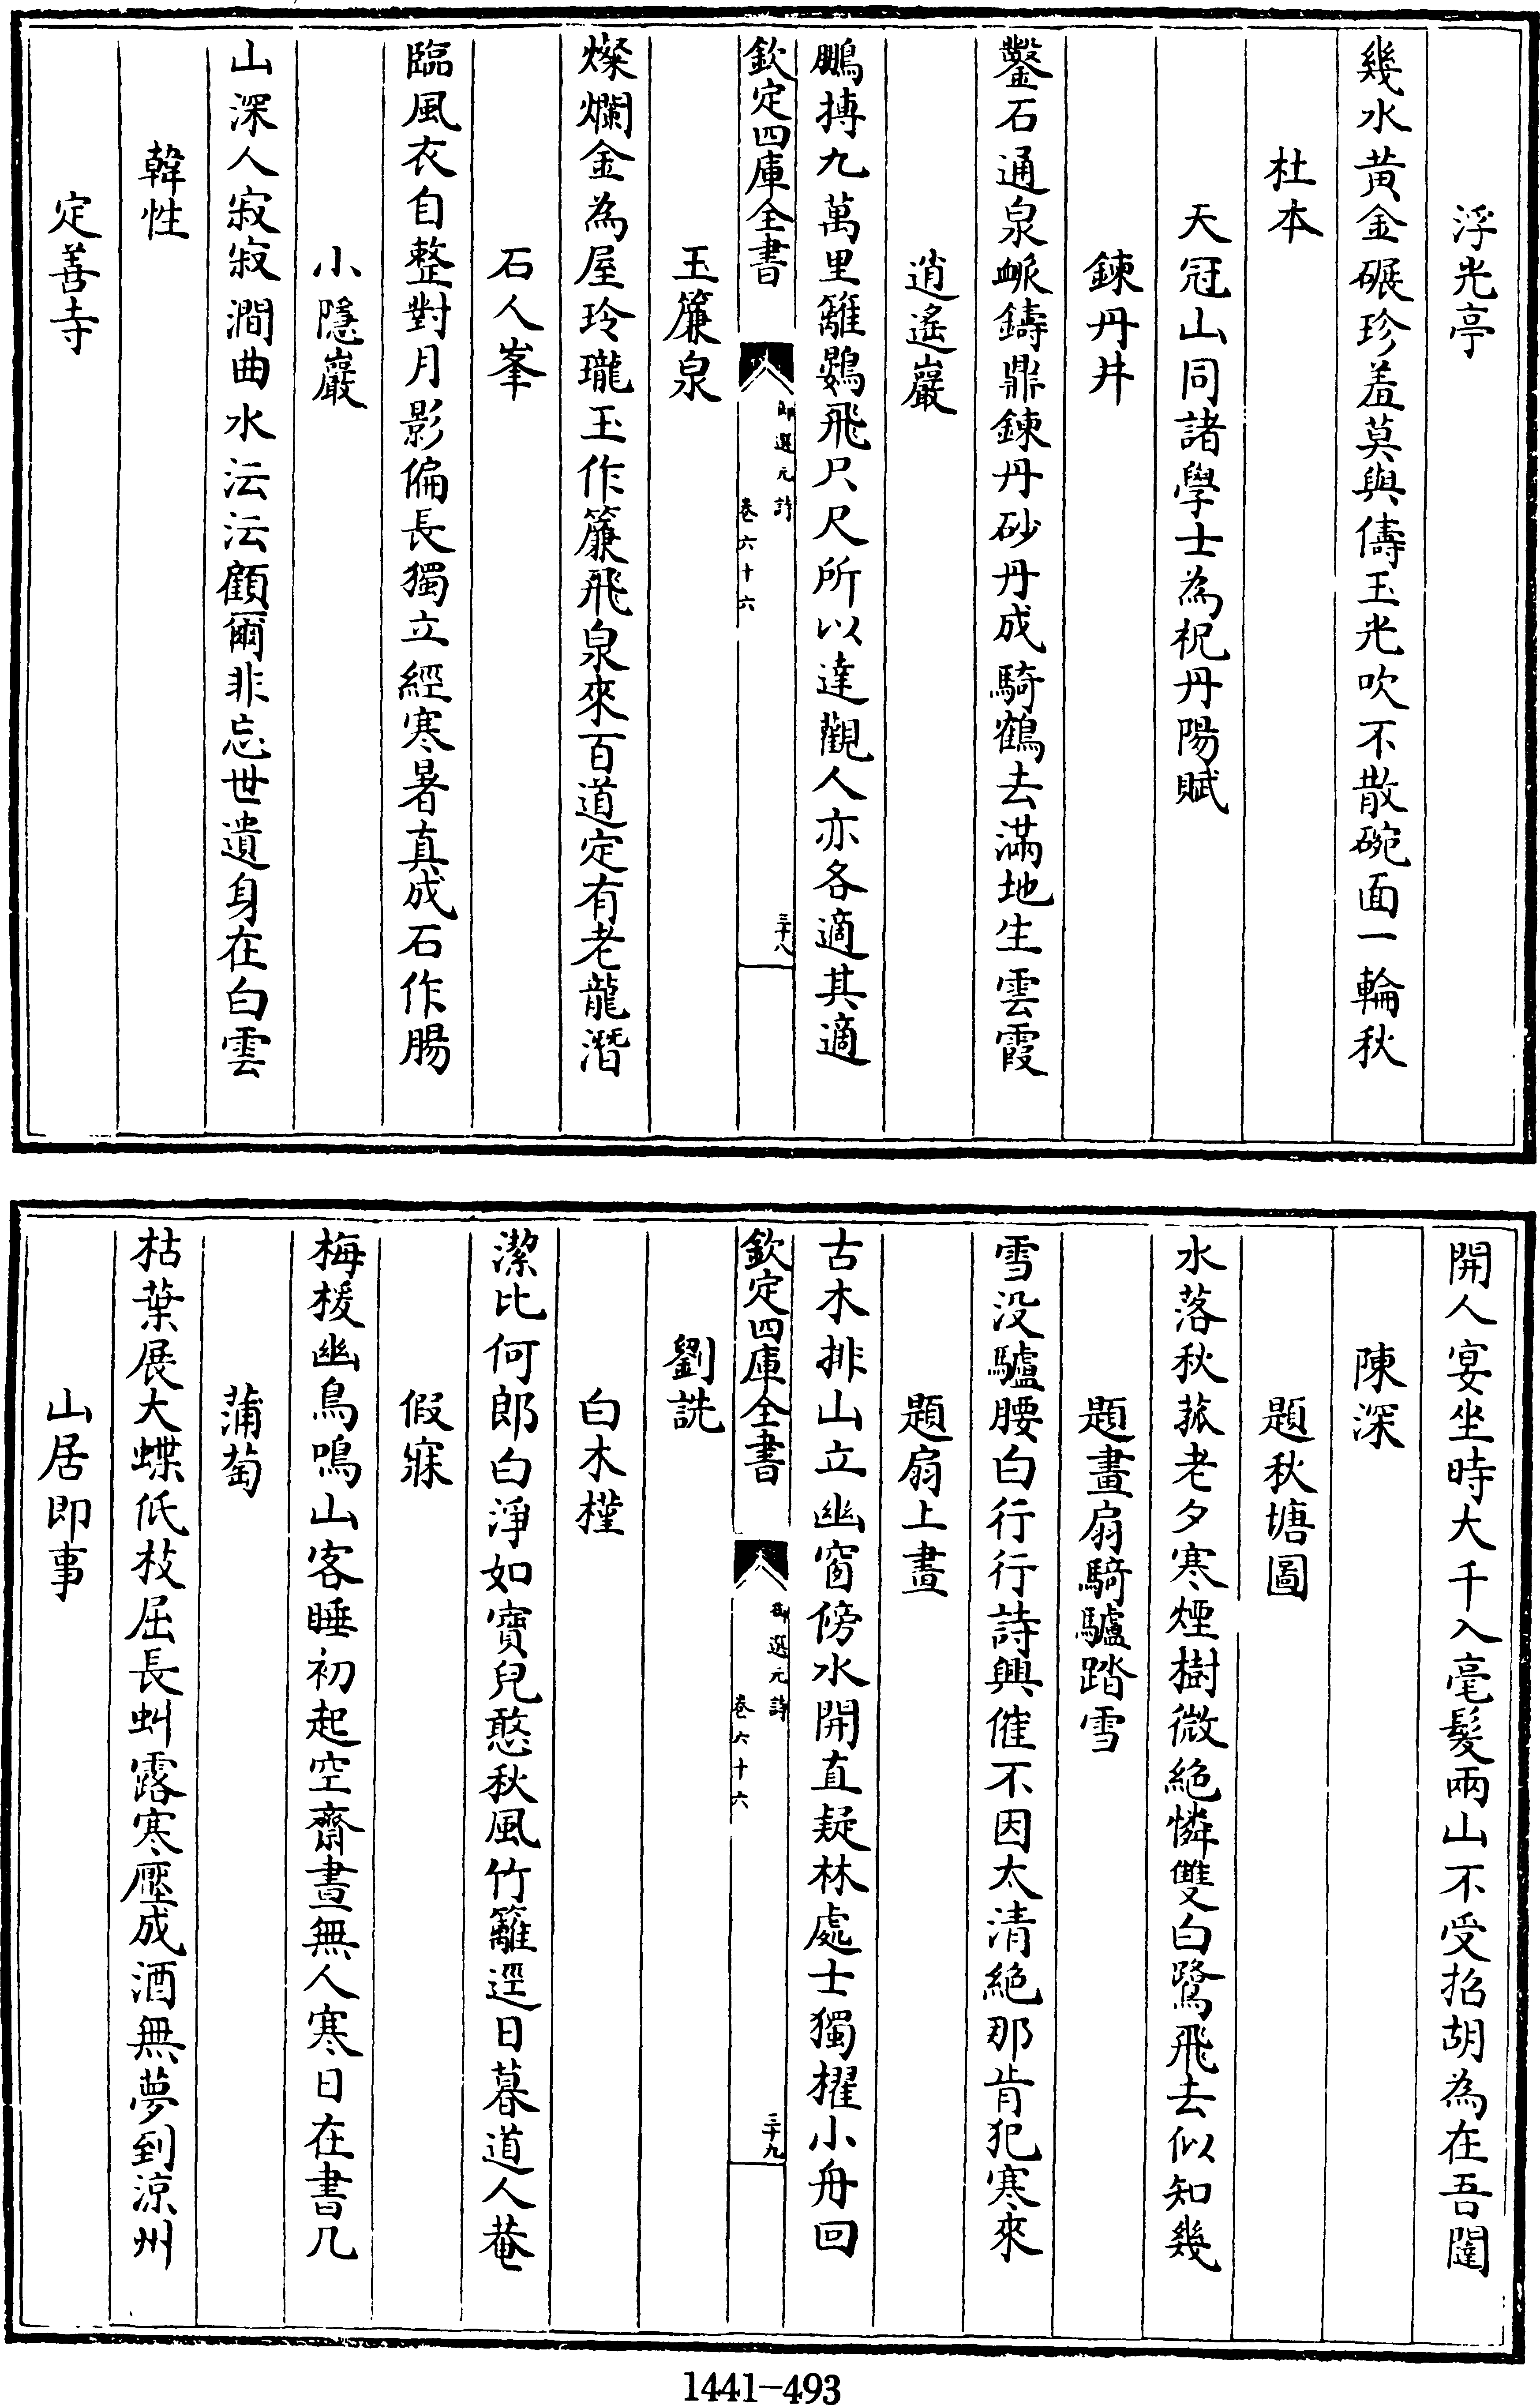 浮光亭
幾水黃金碾珍羞莫與儔玉光吹不散碗面一輪秋
杜本
天冠山同諸學士為祝丹陽賦
鍊丹井
鑿石通泉脈鑄鼎鍊丹砂丹成騎鶴去滿地生雲霞
逍遙巖
鵬搏九萬里籬鷃飛尺尺所以達觀人亦各適其適
欽定四庫全書
御選元詩
卷六十六
三十八
玉簾泉
燦爛金為屋玲瓏玉作簾飛泉來百道定有老龍潛
石人峯
臨風衣自整對月影偏長獨立經寒暑真成石作腸
小隱巖
山深人寂寂澗曲水沄沄顧爾非忘世遺身在白雲
韓性
定善寺
開人宴坐時大千入毫髮兩山不受招胡為在吾闥
陳深
題秋塘圖
水落秋菰老夕寒煙樹微絕憐雙白鷺飛去似知幾
題畫扇騎驢踏雪
雪没驢腰白行行詩興催不因太清絕那肯犯寒來
題扇上畫
古木排山立幽窗傍水開直疑林處士獨櫂小舟回
欽定四庫全書
御選元詩
卷六十六
三十九
劉詵
白木槿
潔比何郎白淨如寶兒憨秋風竹籬逕日暮道人菴
假寐
梅援幽鳥鳴山客睡初起空齋晝無人寒日在書几
蒲萄
枯葉展大蝶低枝屈長虯露寒壓成酒無夢到涼州
山居即事
1441-493